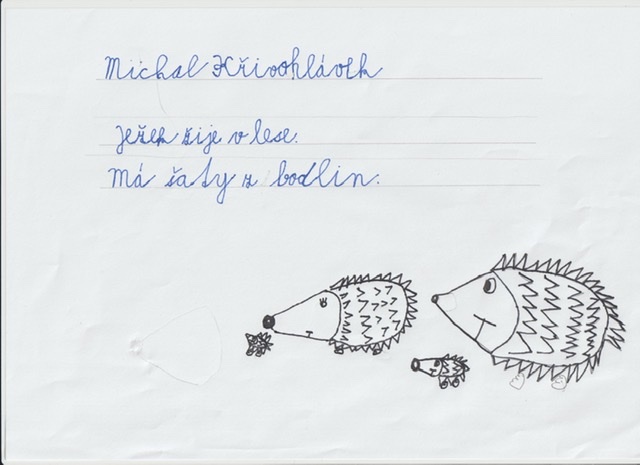 Michal Křivohlávek
Ježek žije v lese.
Má šaty z bodlin.